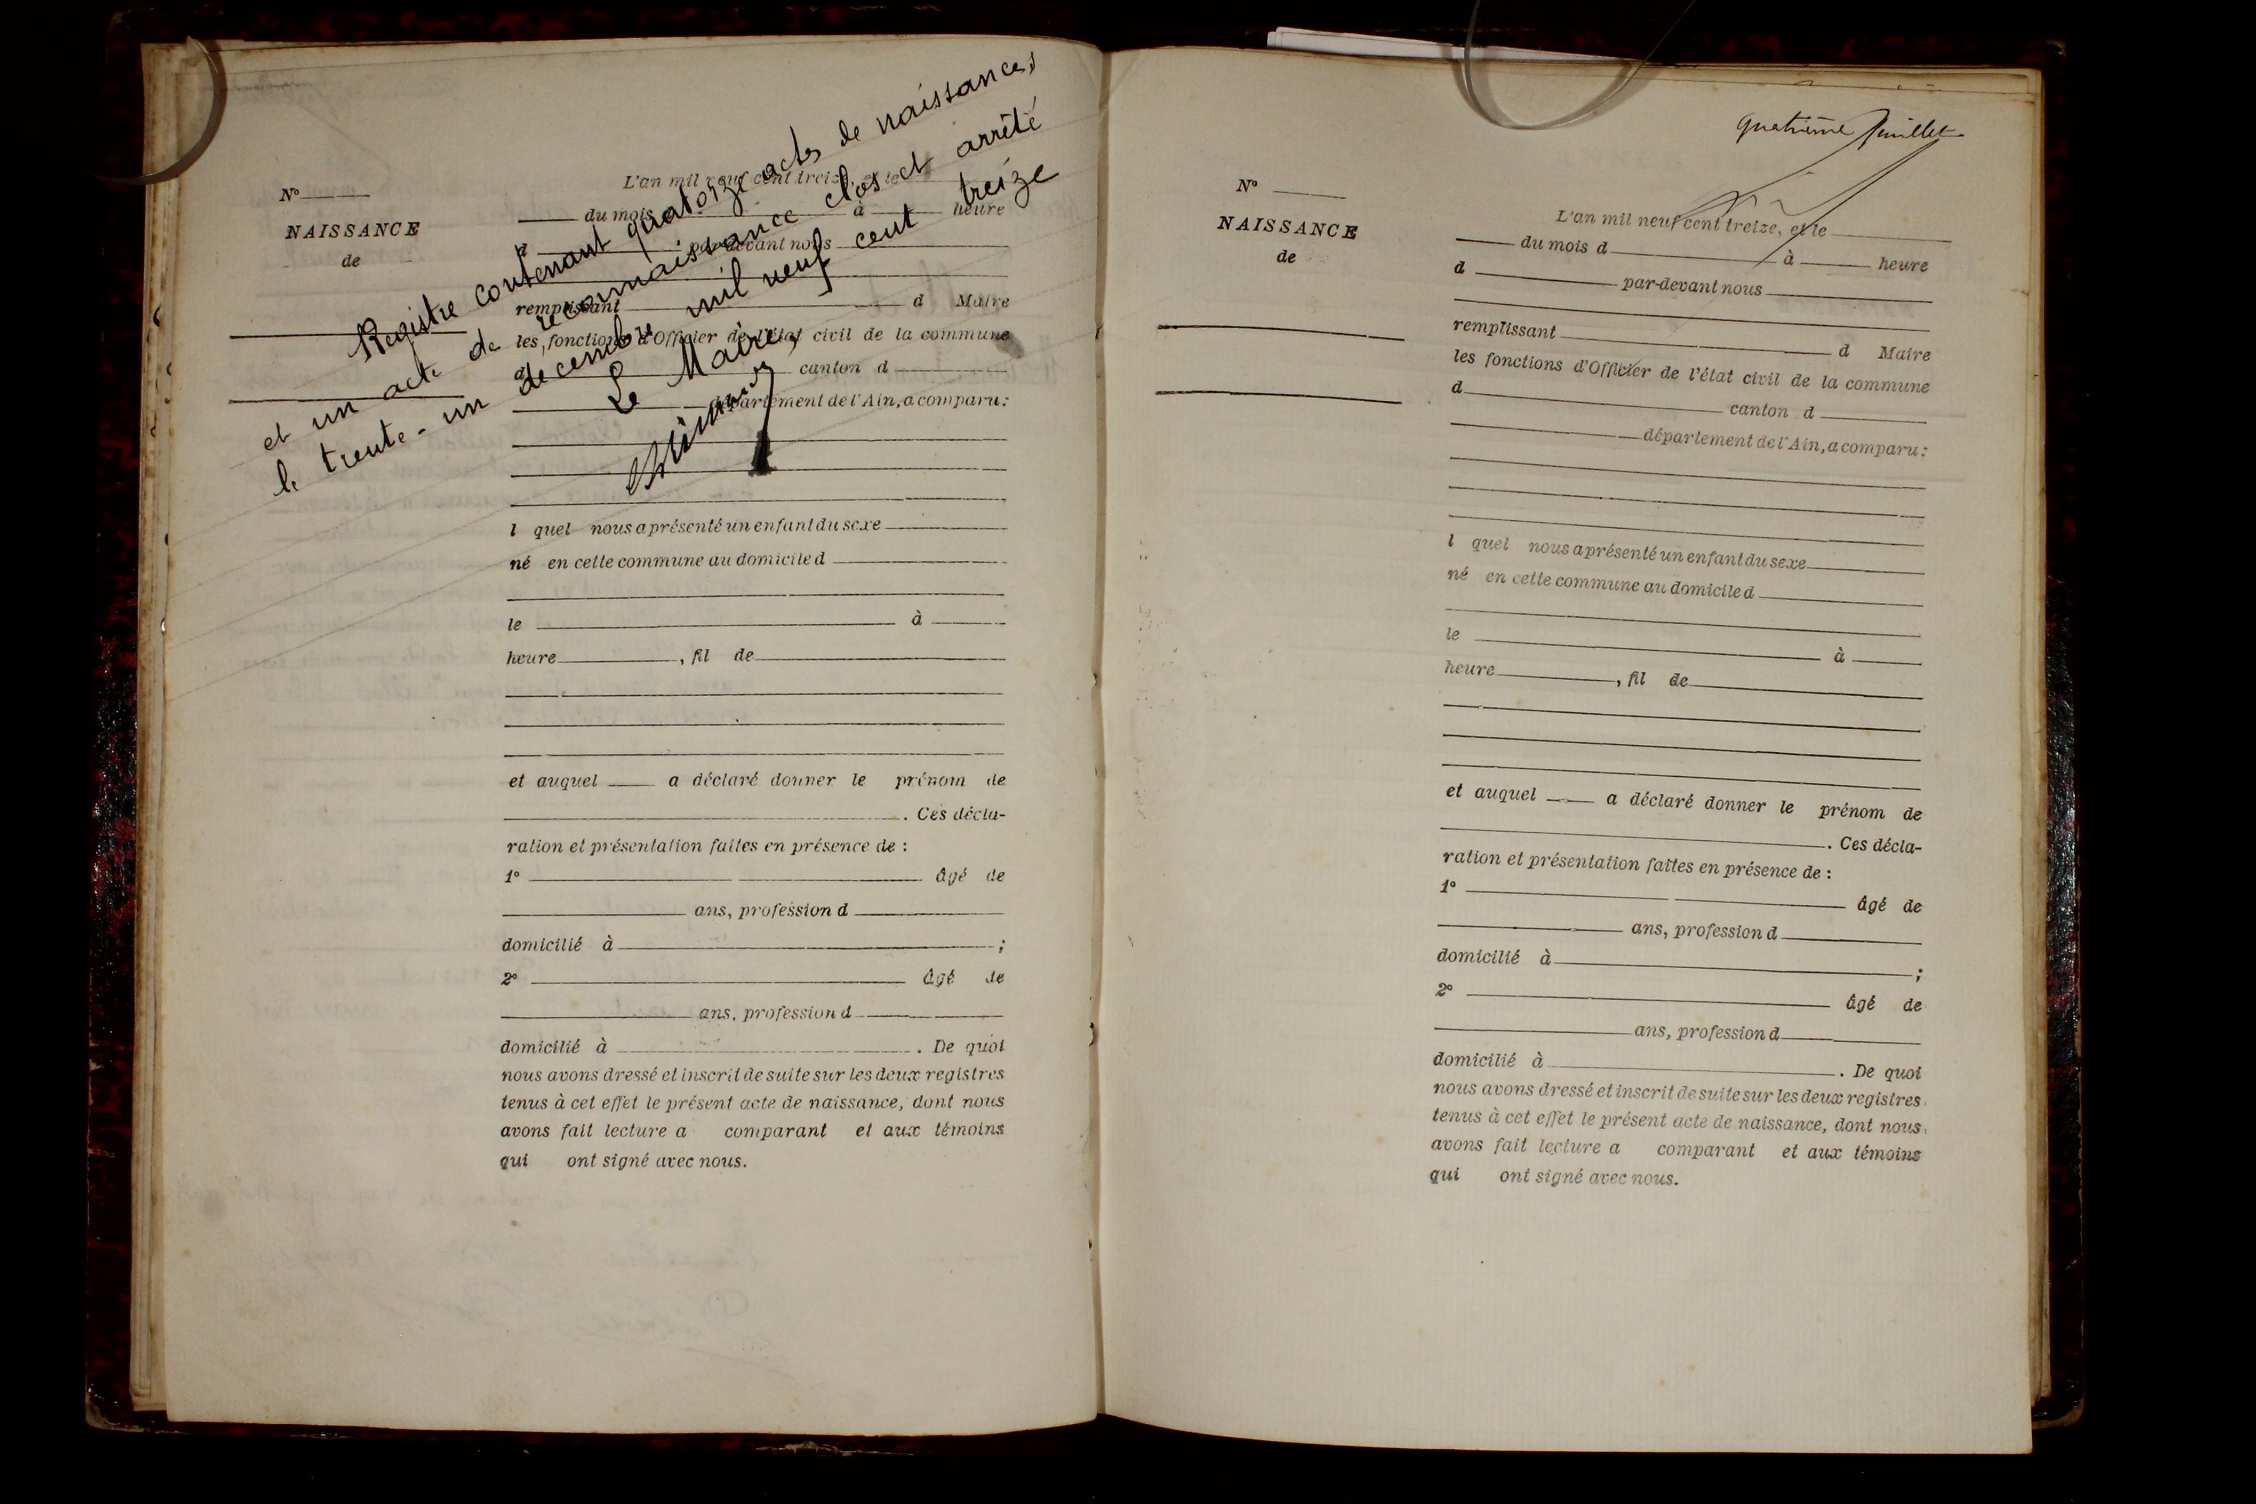 Registre contenant quatorze actes de naissances
et un acte de reconnaissance clos et arrêté
le trente-un décembre mil neuf cent treize
Le Maire,
N°
NAISSANCE
de
L'an mil neuf cent treize, et le
du mois à heure
d par-devant nous
remplissant d Maire
les fonctions d'Officier de l'état civil de la commune
d canton d
département de l'Ain, a comparu:
l quel nous a présenté un enfant du sexe
né en cette commune au domicile d
le à
heure , fil de
et auquel a déclaré donner le prénom de
. Ces décla-
ration et présentation faites en présence de :
1° âgé de
ans, profession d
domicilié à ;
2° âgé de
ans, profession d
domicilié à . De quoi
nous avons dressé et inscrit de suite sur les deux registres
tenus à cet effet le présent acte de naissance, dont nous
avons fait lecture a comparant et aux témoins
qui ont signé avec nous.
quatrième feuillet
N°
NAISSANCE
de
L'an mil neuf cent treize, et le
du mois d à heure
d par-devant nous
remplissant d Maire
les fonctions d'Officier de l'état civil de la commune
d canton d
département de l'Ain, a comparu:
l quel nous a présenté un enfant du sexe
né en cette commune au domicile d
le à
heure , fil de
et auquel a déclaré donner le prénom de
. Ces décla-
ration et présentation faites en présence de :
1° âgé de
ans, profession d
domicilié à ;
2° âgé de
ans, profession d
domicilié à . De quoi
nous avons dressé et inscrit de suite sur les deux registres
tenus à cet effet le présent acte de naissance, dont nous
avons fait lecture a comparant et aux témoins
qui ont signé avec nous.